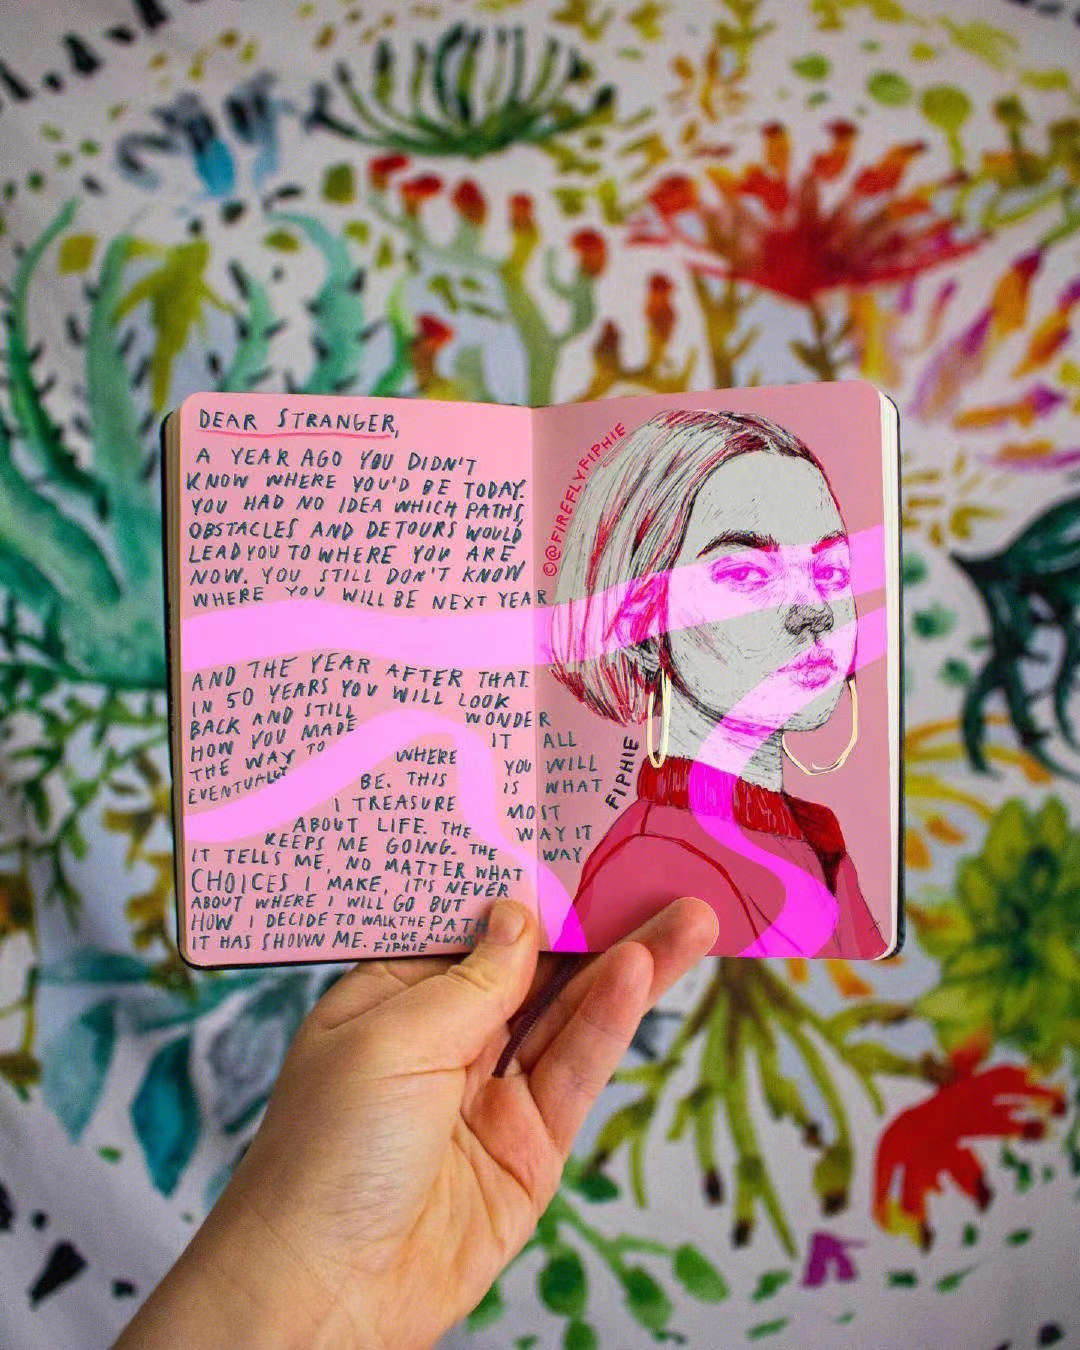 DEAR STRANGER,
A YEAR AGO YOU DIDN'T
KNOW WHERE YOU'D BE TODAY.
YOU HAD NO IDEA WHICH PATHS,
OBSTACLES AND DETOURS WOULD
LEAD YOU TO WHERE YOU ARE
NOW. YOU STILL DON'T KNOW
WHERE YOU WILL BE NEXT YEAR
AND THE YEAR AFTER THAT.
IN 50 YEARS YOU WILL LOOK
BACK AND STILL WONDER
HOW YOU MADE IT ALL
THE WAY TO WHERE YOU WILL
EVENTUALLY BE. THIS IS WHAT
I TREASURE MOST
ABOUT LIFE. THE WAY IT
KEEPS ME GOING. THE WAY
IT TELLS ME, NO MATTER WHAT
CHOICES I MAKE, IT'S NEVER
ABOUT WHERE I WILL GO BUT
HOW I DECIDE TO WALK THE PATH
IT HAS SHOWN ME. LOVE ALWAYS
FIPHIE
©@FIREFLYFIPHIE
FIPHIE